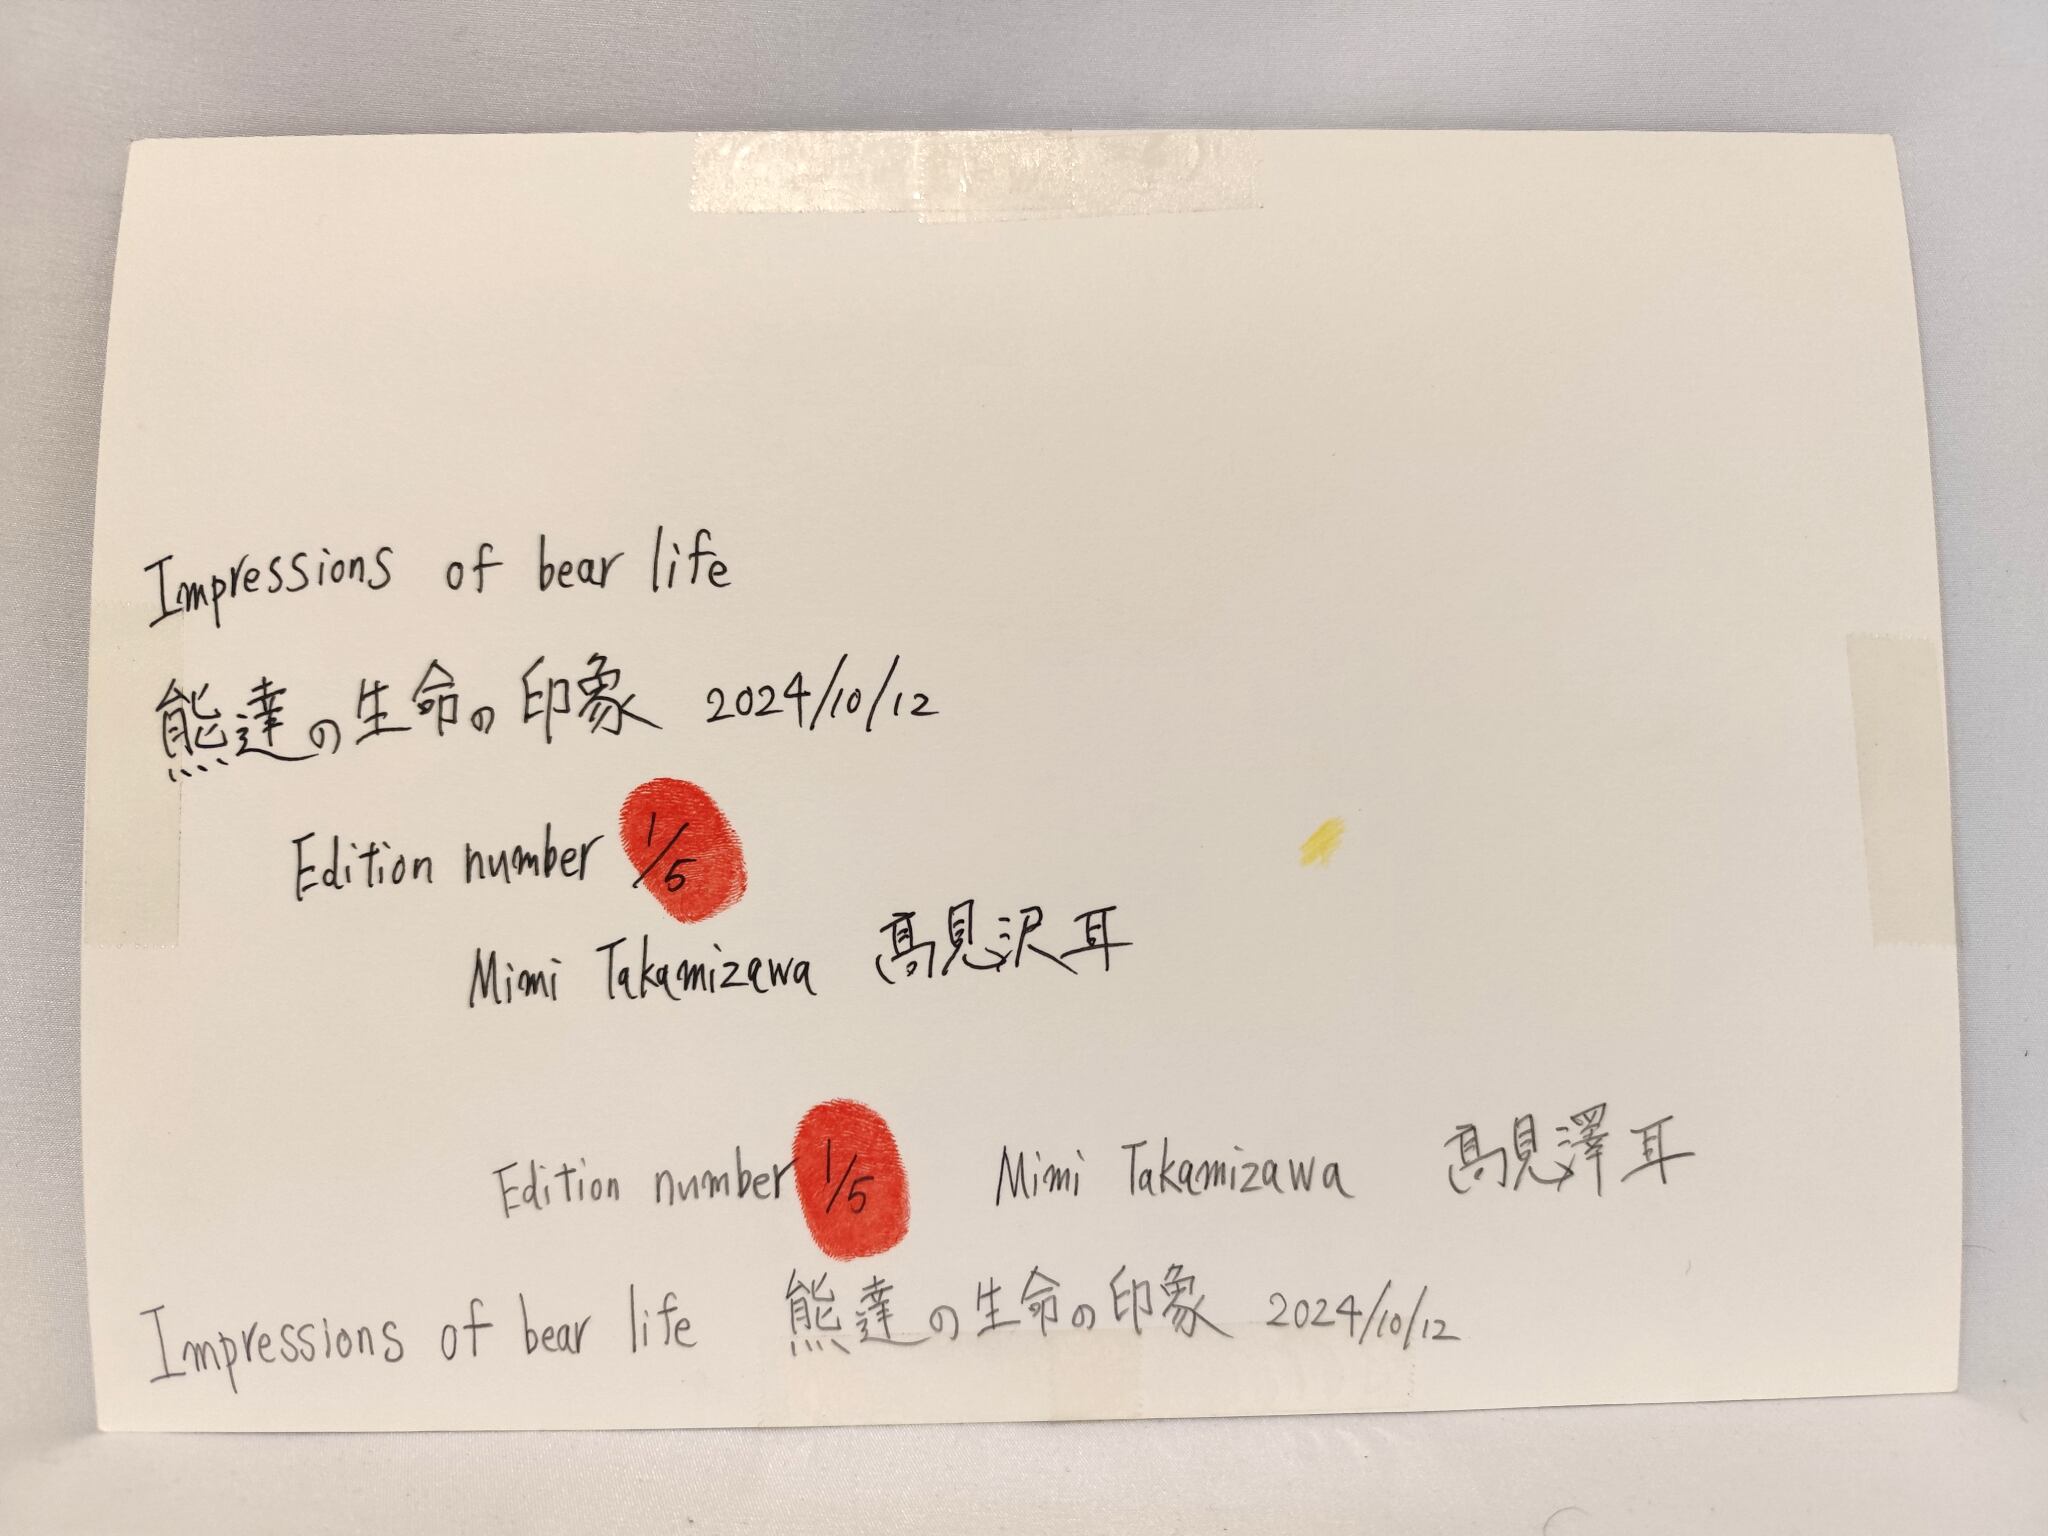 Impressions of bear life
熊達の生命の印象 2024/10/12
Edition number 1/5
Mimi Takamizawa 髙見沢耳
Edition number 1/5 Mimi Takamizawa 髙見澤耳
Impressions of bear life 熊達の生命の印象 2024/10/12